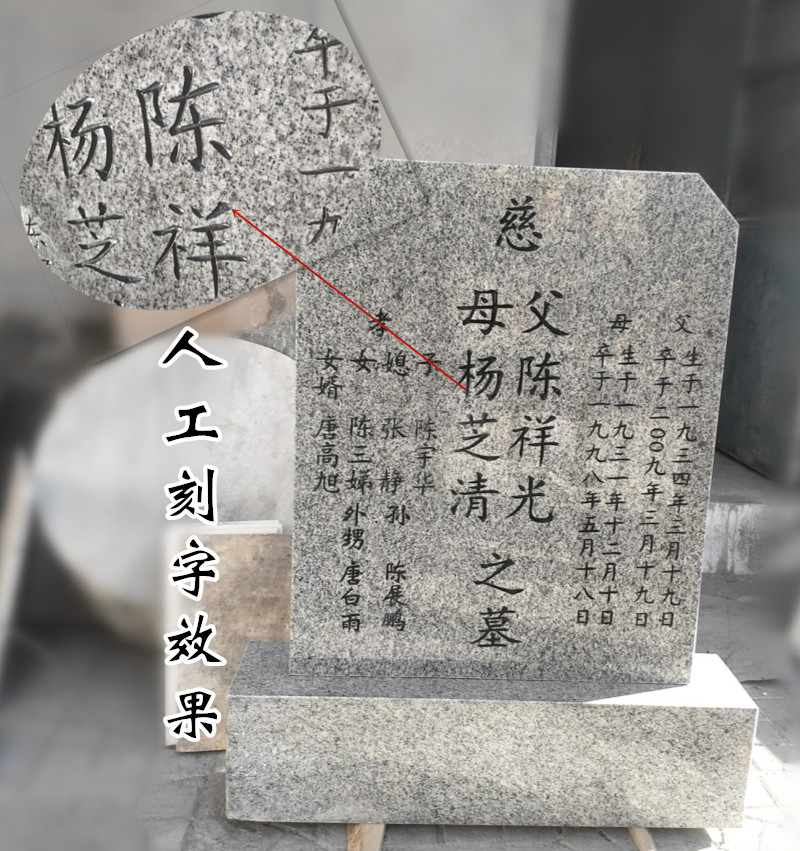 父 生于一九三四年三月十九日
卒于二00九年三月十九日
母 生于一九三一年十二月十日
卒于一九九八年五月十八日
慈
父陈祥光
母杨芝清
之墓
孝
子 陈宇华
媳 张静 孙 陈展鹏
女 陈三娣 外甥 唐白雨
女婿 唐高旭
于一九
陈祥
杨芝
人工刻字效果